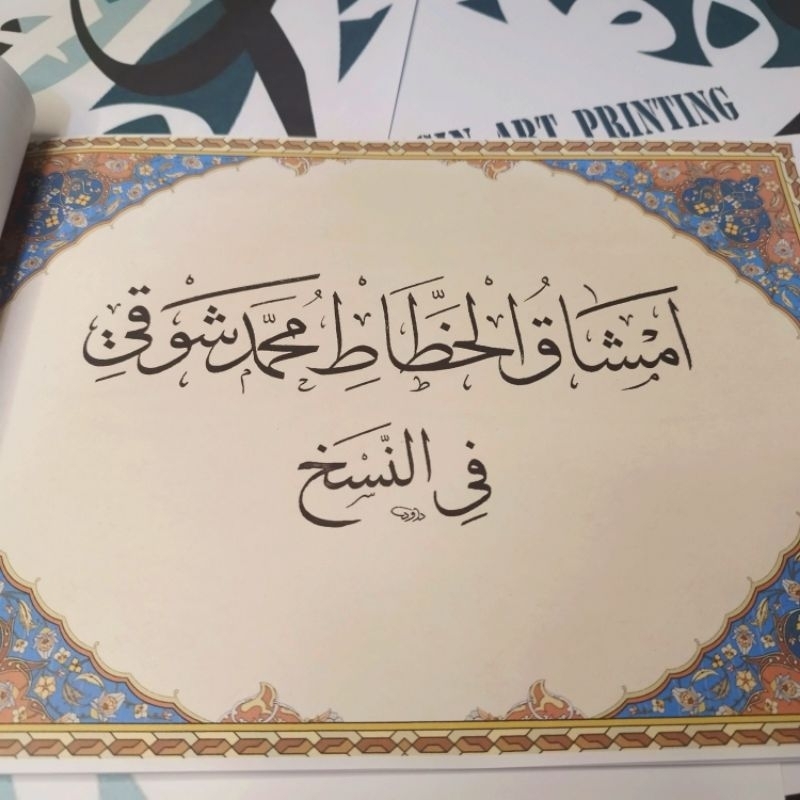 ART PRINTING
اَمْشَاقُ الْخَطَّاطِ مُحَمَّد شَوْقِي
فِي النَّسَخِ
داود